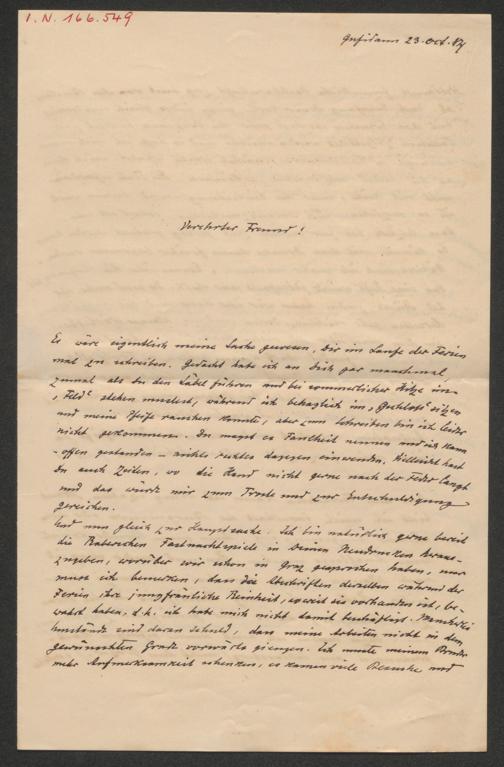 I.N. 166.549
Gufidaun 23. Oct. 84
Verehrter Freund!
Es wäre eigentlich meine Sache gewesen, Dir im Laufe der Ferien
mal zu schreiben. Gedacht habe ich an Dich gar manchmal
zumal als Du den Säbel führen und bei sommerlicher Hitze im
"Feld" stehen musstest, während ich behaglich im sitzen
und meine Pfeife rauchen konnte, aber zum Schreiben bin ich leider
nicht gekommen. Du magst es Faulheit nennen und ich kann
- offen gestanden - nichts rechtes dagegen einwenden. Vielleicht hast
Du auch Zeiten, wo die Hand nicht gerne nach der Feder langt
und das würde mir zum Troste und zur Entschuldigung
gereichen.
Und nun gleich zur Hauptsache. Ich bin natürlich gerne bereit
die Raberschen Fastnachtspiele in Deinen Neudrucken heraus-
zugeben, worüber wir schon in Graz gesprochen haben, nur
muss ich bemerken, dass die Abschriften derselben während der
Ferien ihre jungfräuliche Reinheit, soweit sie vorhanden ist, be-
wahrt haben, d.h. ich habe mich nicht damit beschäftigt. Mancherlei
Umstände sind daran schuld, dass meine Arbeiten nicht in dem
gewünschten Grade vorwärts giengen. Ich musste meinem Bruder
mehr Aufmerksamkeit schenken, es kamen viele Besuche und